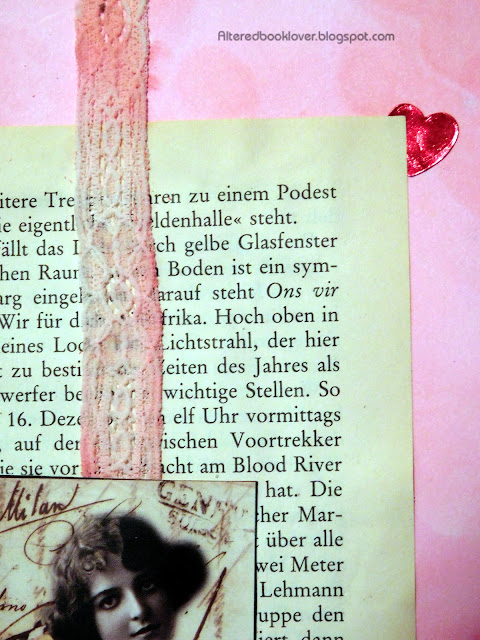 Alteredbooklover.blogspot.com
itere Tre ren zu einem Podest
ie eigentl eldenhalle« steht.
fällt das L ch gelbe Glasfenster
chen Raum Boden ist ein sym-
arg einge arauf steht Ons vir
Wir für d frika. Hoch oben in
eines Loc Lichtstrahl, der hier
t zu besti Zeiten des Jahres als
werfer be wichtige Stellen. So
16. Deze elf Uhr vormittags
, auf de ischen Voortrekker
ie sie vor acht am Blood River
hat. Die
cher Mar-
t über alle
wei Meter
Lehmann
uppe den
dann
Milan